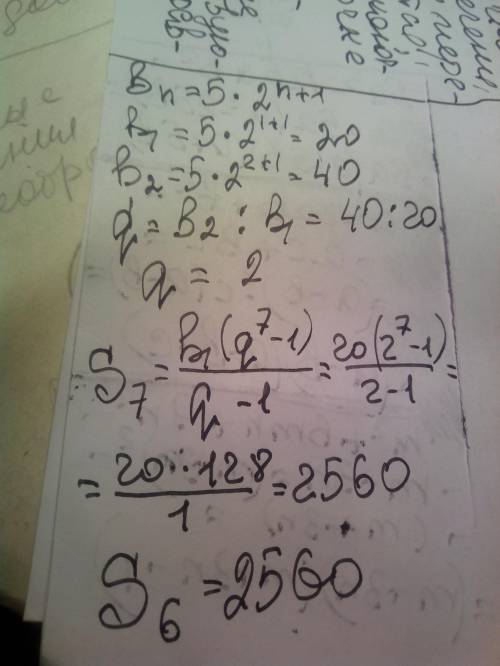 Bn = 5 · 2^n+1
b1 = 5 · 2^1+1 = 20
B2 = 5 · 2^2+1 = 40
q = B2 : B1 = 40 : 20
q = 2
S7 = b1(q^7-1) / q-1 = 20(2^7-1) / 2-1 =
= 20 · 128 / 1 = 2560
S6 = 2560